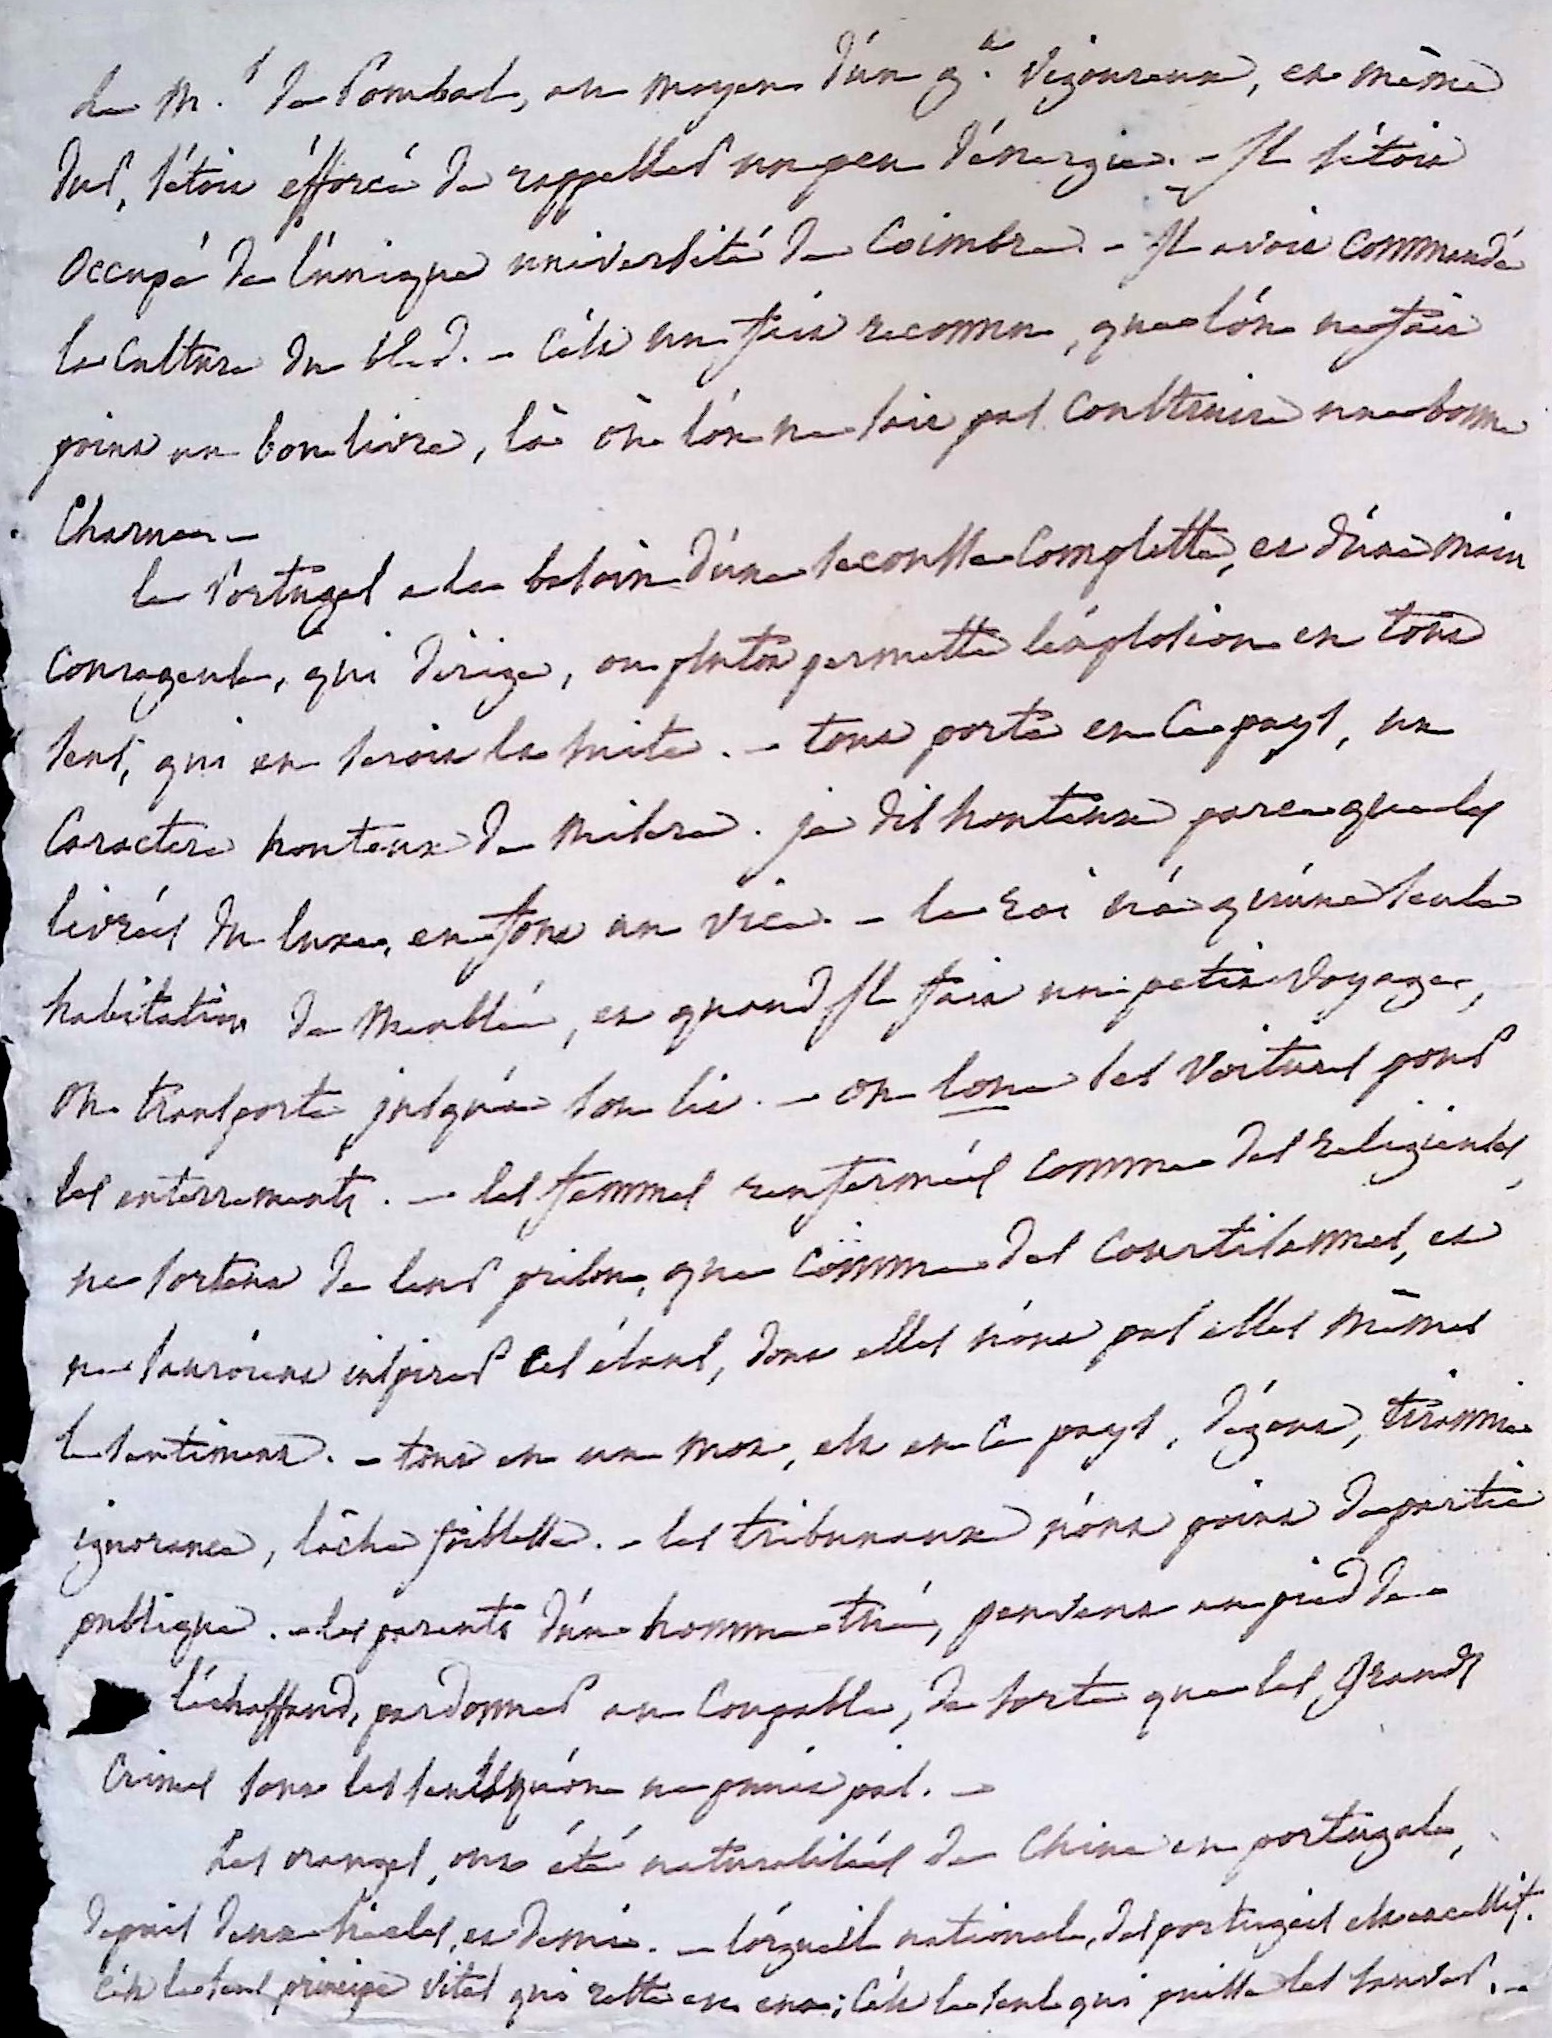 Le M.^s de Pombal, au moyen d'un g.^t vigoureux, et même
dur, s'étoit éfforcé de rappeller un peu d'énergie. - Il s'étoit
occupé de l'unique université de Coimbre. - Il avoit commandé
la culture du bled. - C'est un fait reconnu, que l'on ne fait
point un bon livre, là où l'on ne sait pas construire une bonne
Charrue. -
le Portugal a eu besoin d'une secousse complette, et d'une main
courageuse, qui dirige, ou plutôt permette l'éxplosion en tout
sens, qui en seroit la suite. - tout porte en Ce pays, un
Caractere honteux de misere. je dis honteux parce que les
livrées du luxe, en font un vice. - le roi n'a qu'une seule
habitation de meublée, et quand Il fait un petit voyage,
on transporte jusqu'à son lit. - on loue les voitures pour
les enterrements. - les femmes renfermées comme des religieuses,
ne sortent de leur prison, que comme des courtisannes, et
ne sauroient inspirer ces élans, dont elles n'ont pas elles mêmes
le sentiment. - tout en un mot, est en Ce pays, dégout, tirannie
ignorance, lâche foiblesse. - les tribunaux n'ont point de partie
publique. - les parents d'un homme tué, peuvent au pied de
l'échaffaud, pardonner au Coupable, de sorte que les grands
Crimes sont les seuls qu'on ne punit pas. -
Les oranges, ont été naturalisées de Chine en portugal,
depuis deux siecles, et demie. - l'orgueil national, des portugais est excessif.
C'est le seul principe vital qui reste en eux; C'est le seul qui puisse les sauver. -